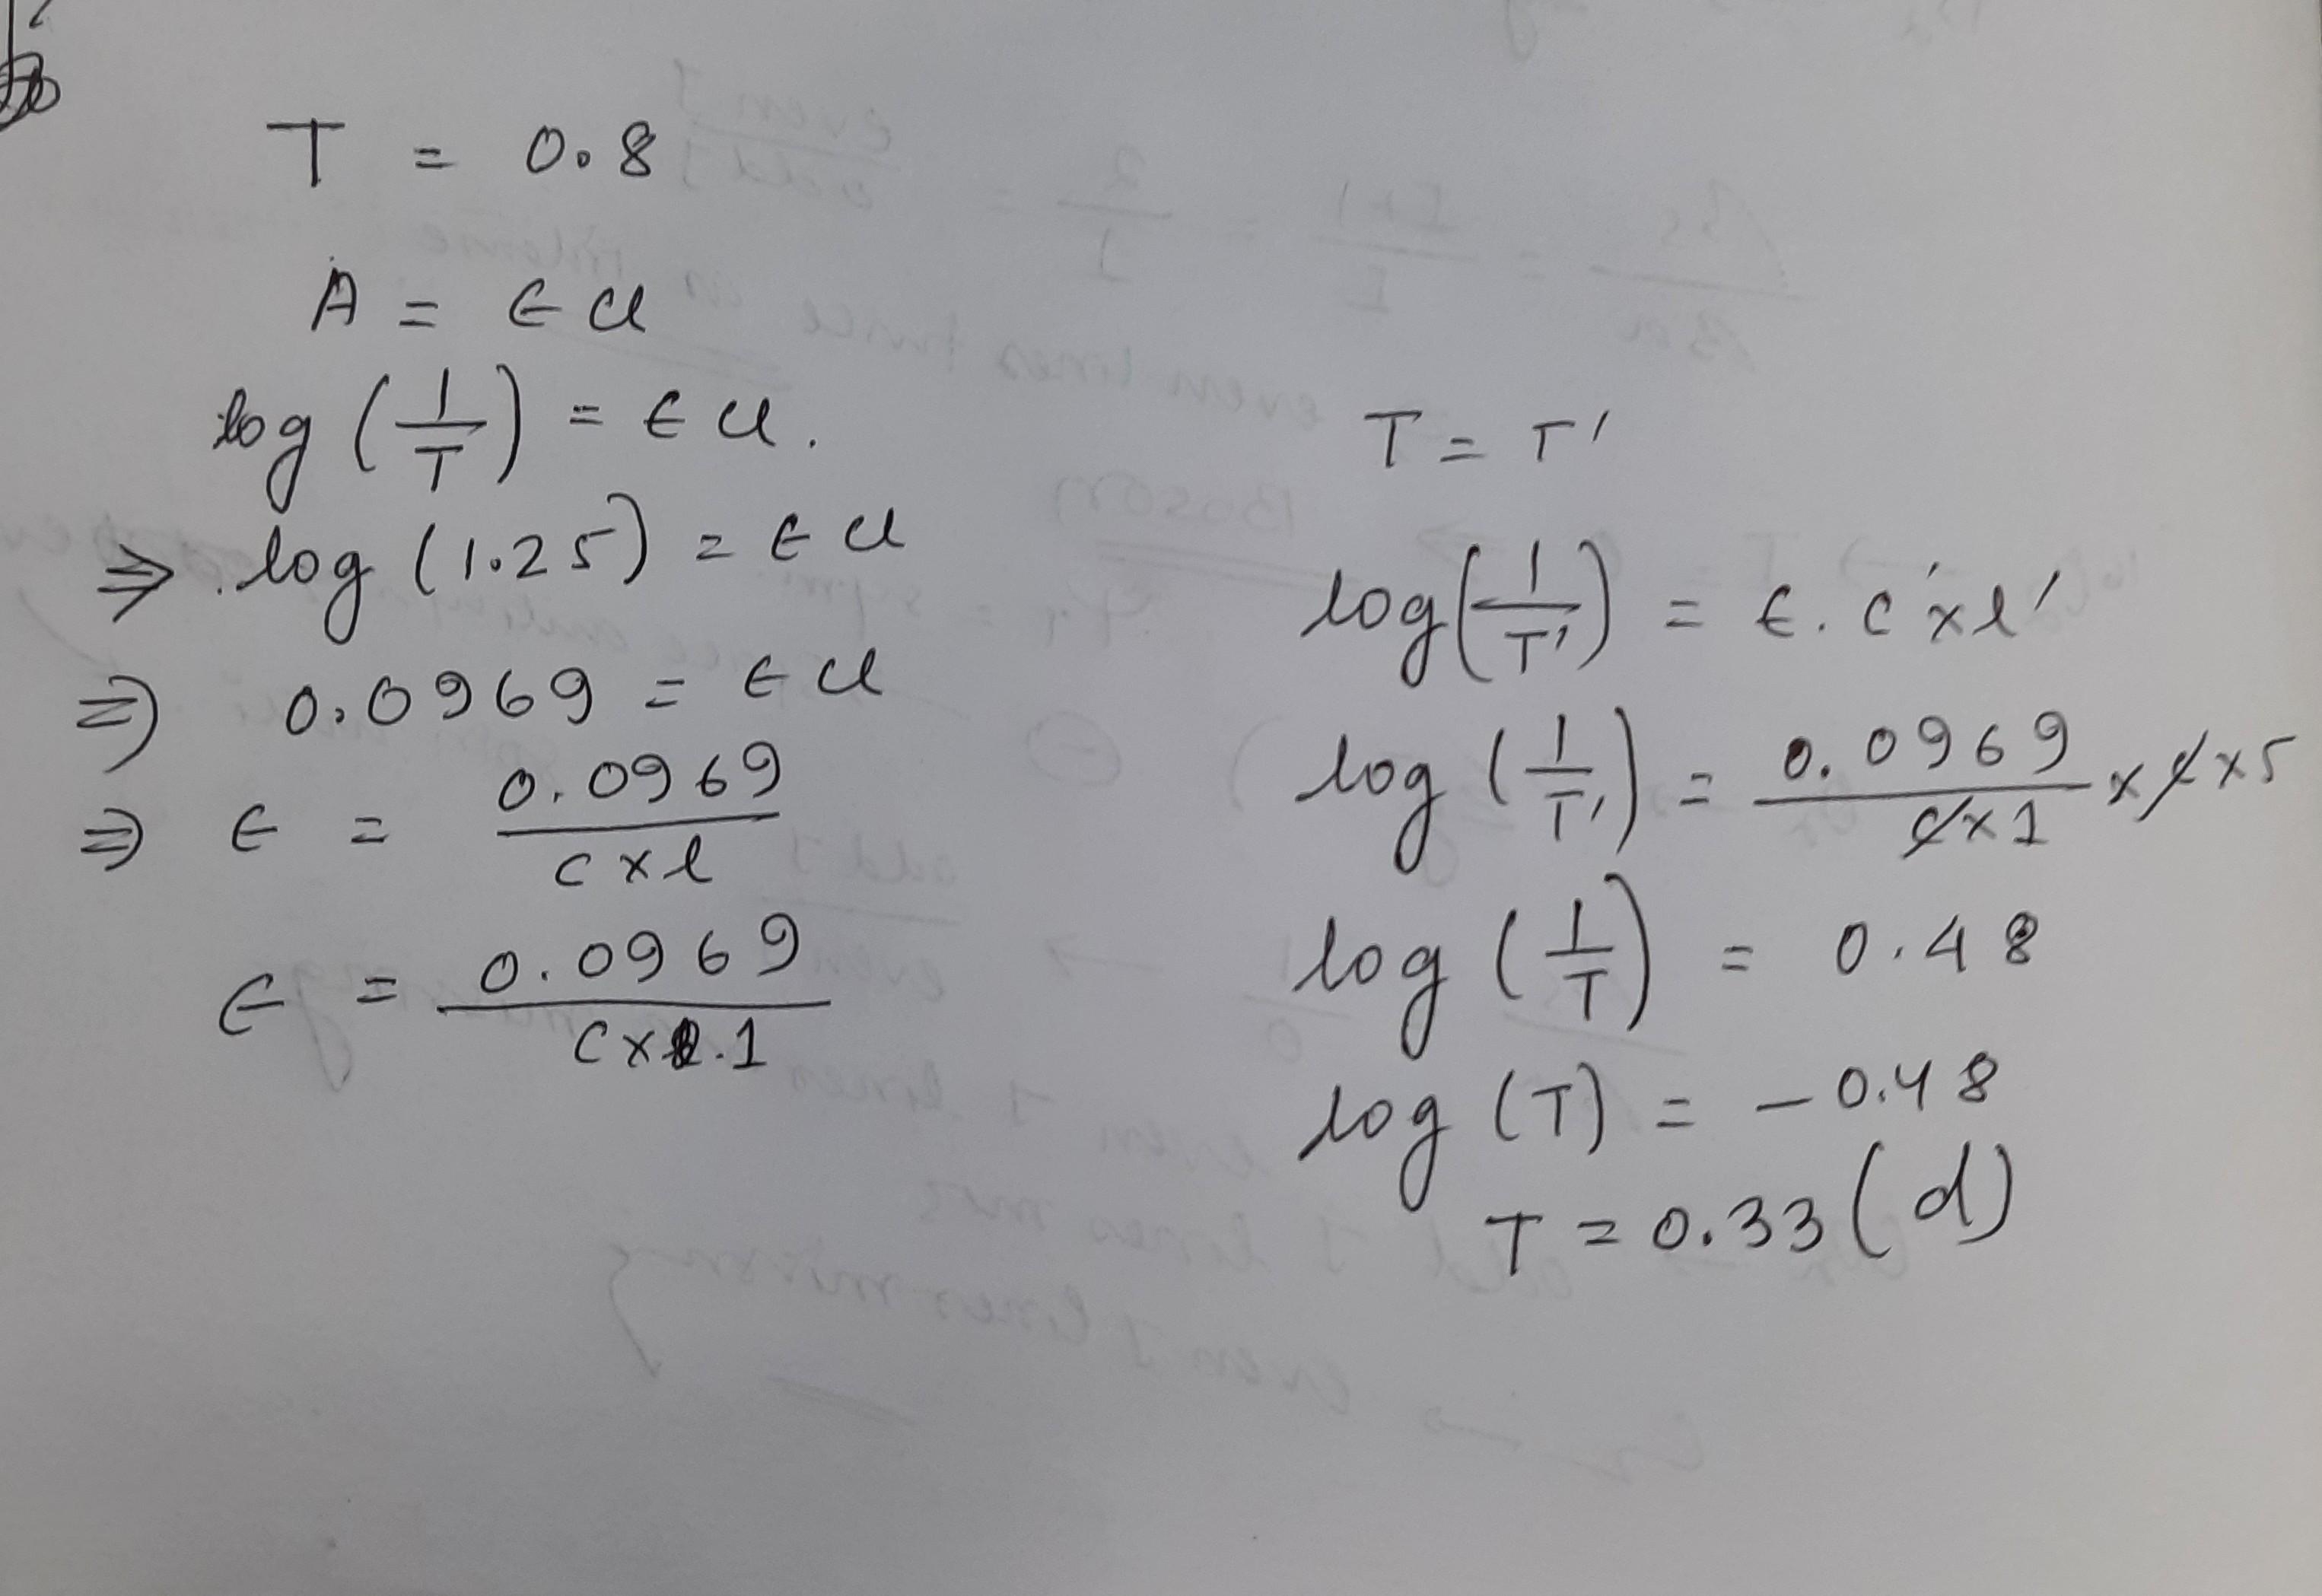 T = 0.8
A = ϵ cl
log (1/T) = ϵ cl.
⇒ log (1.25) = ϵ cl
⇒ 0.0969 = ϵ cl
⇒ ϵ = 0.0969 / c x l
ϵ = 0.0969 / c x 1
T = T'
log (1/T') = ϵ. c' x l'
log (1/T') = 0.0969 / c x 1 x c x 5
log (1/T) = 0.48
log (T) = - 0.48
T = 0.33 (d)